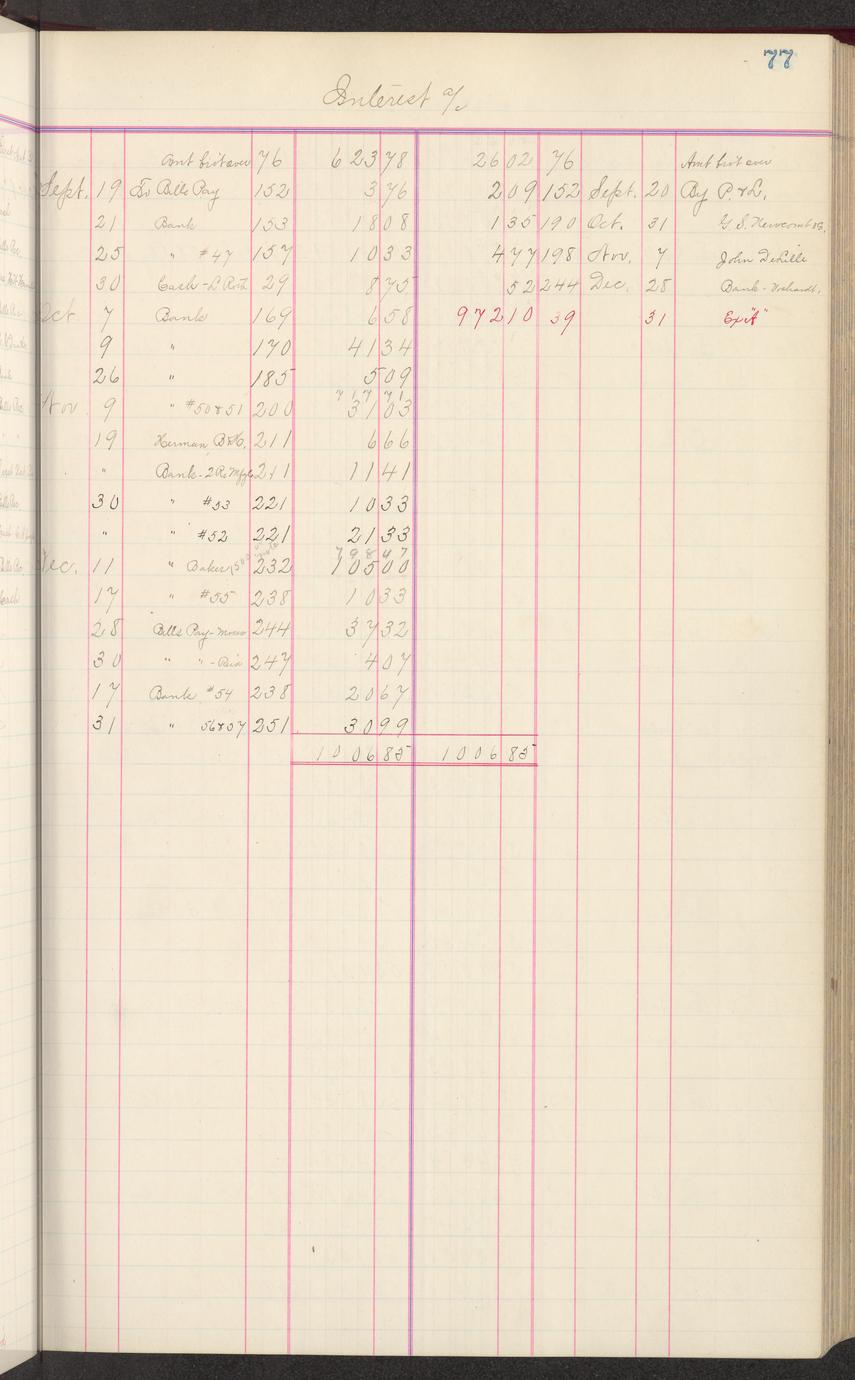 77
Interest a/c
Amt brt over 76 623 78 26 02 76 Amt brt over
Sept. 19 To Bills Pay 152 3 76 2 09 152 Sept. 20 By P. & L.
21 Bank 153 18 08 1 35 190 Oct. 31 G. S. Newcomb & Co.
25 " #47 157 10 33 4 77 198 Nov. 7 John
30 Cash - L 29 8 75 52 244 Dec. 28 Bank -
Oct 7 Bank 169 6 58 972 10 39 31 Ex "A"
9 " 170 41 34
26 " 185 5 09
717 71
Nov 9 " #50 & 51 200 31 03
19 Herman B & Co. 211 6 66
" Bank - 2 R. Mfg Co 211 11 41
30 " #53 221 10 33
" " #52 221 21 33
798 47
Dec. 11 " Baker 232 105 00
17 " #55 238 10 33
28 Bills Pay - 244 37 32
30 " " - 247 4 07
17 Bank #54 238 20 67
31 " 56 & 57 251 30 99
1006 85 1006 85